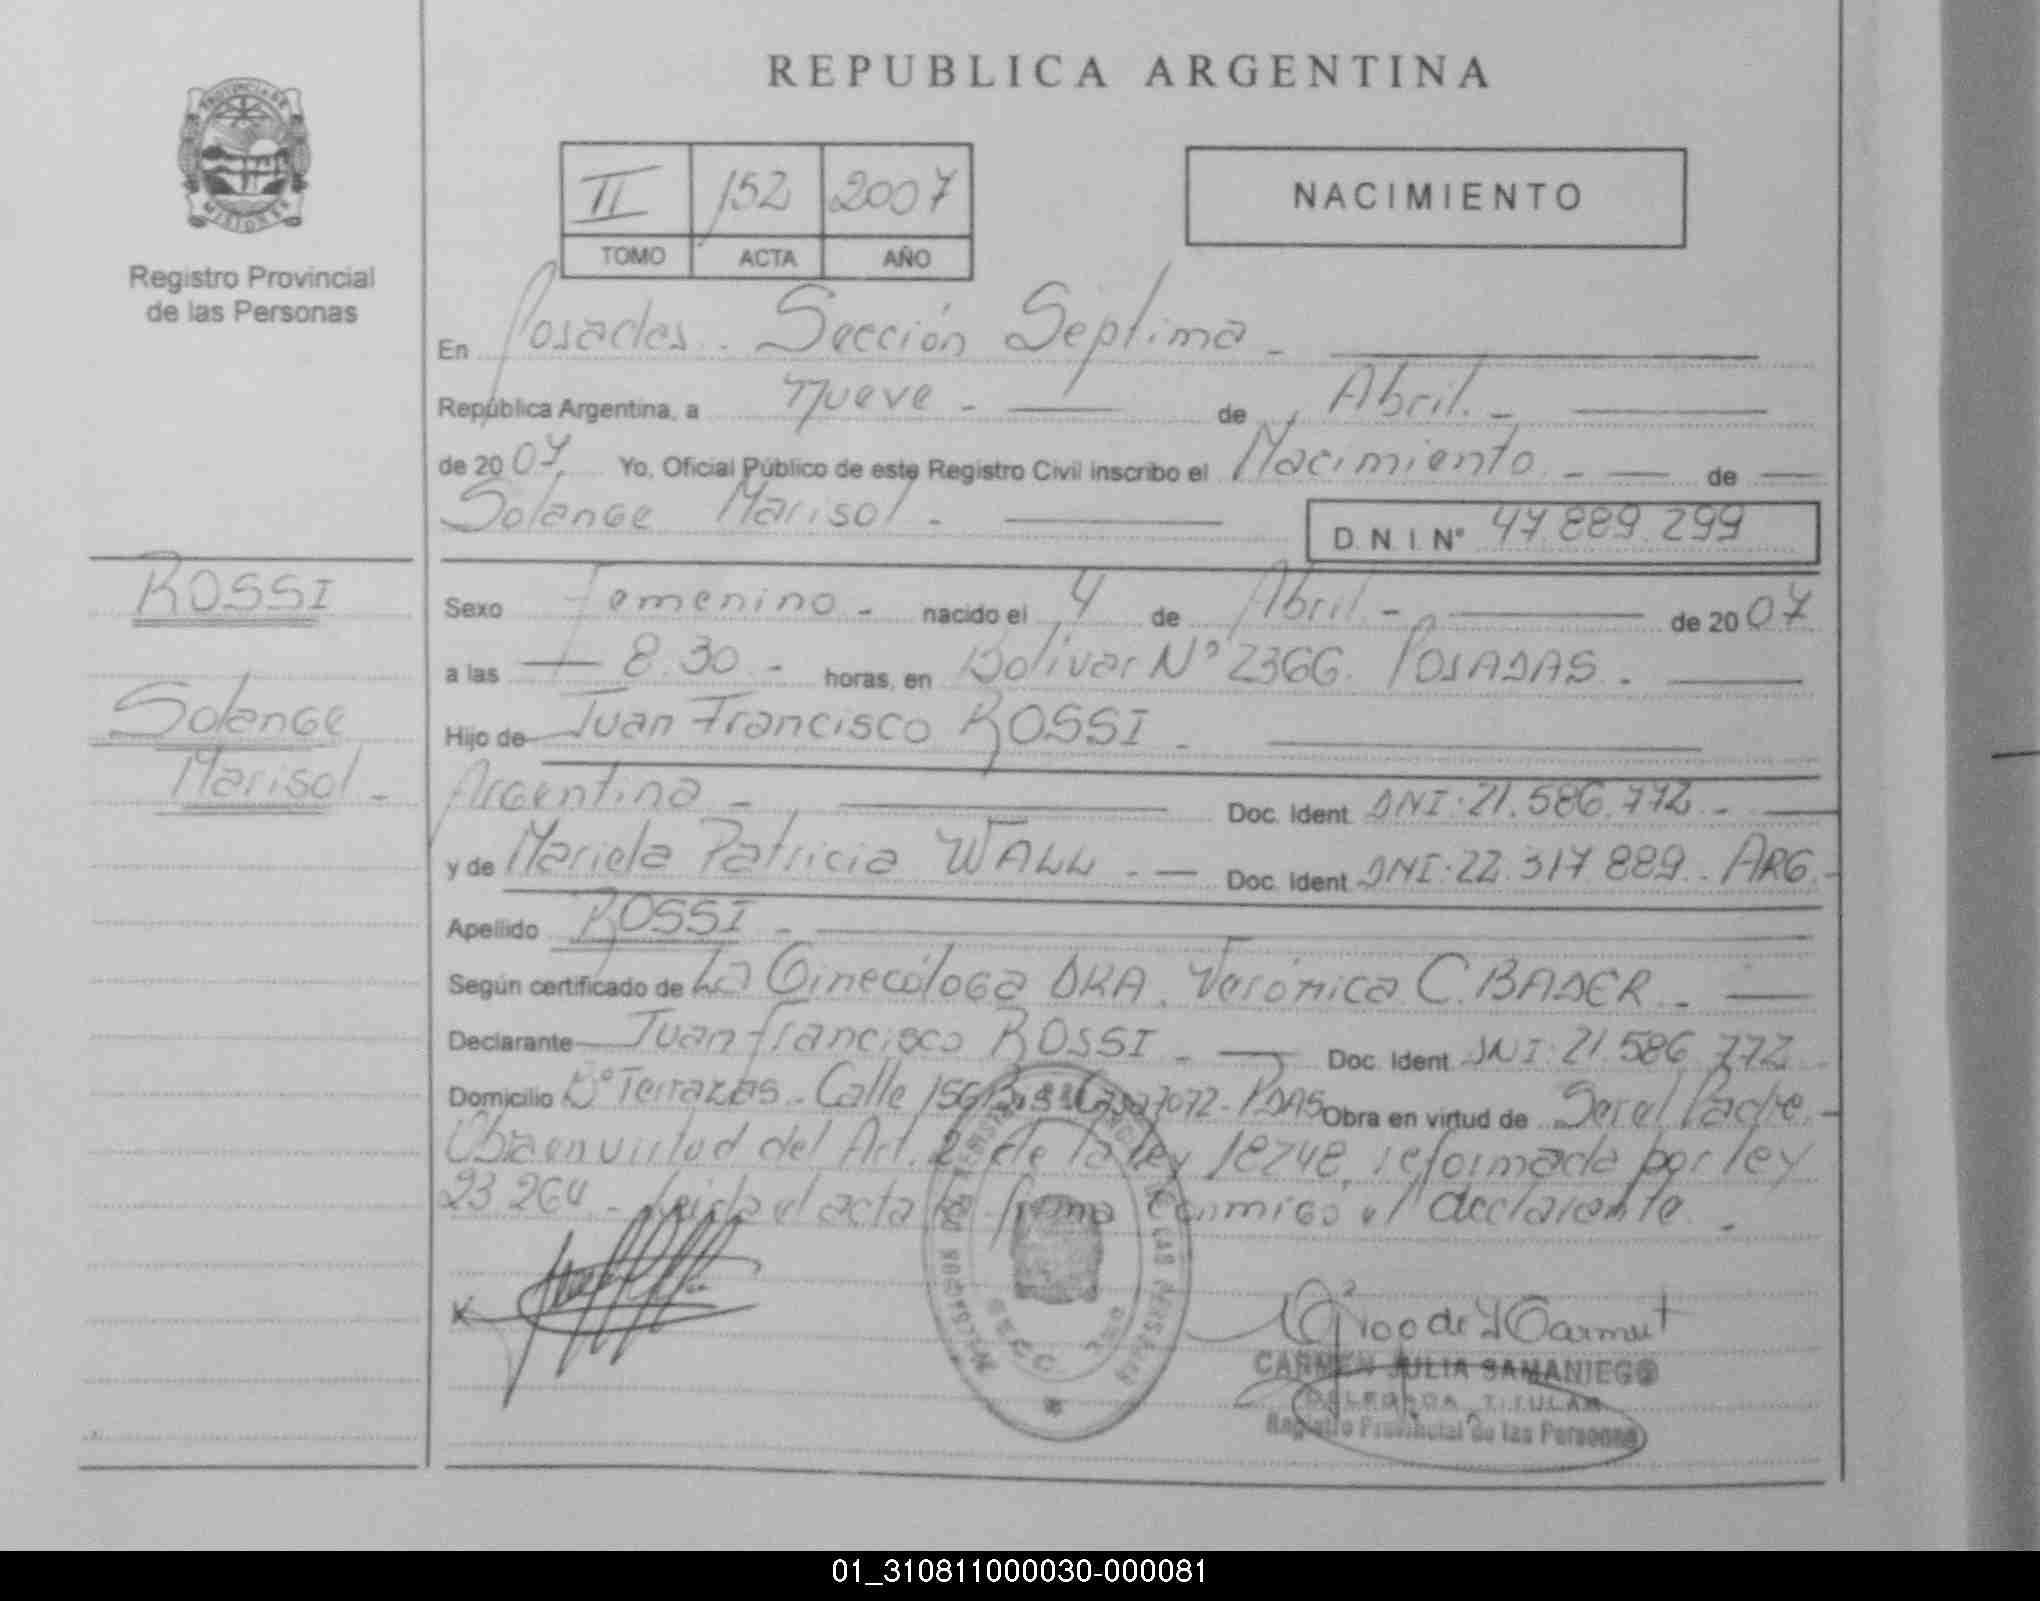 REPUBLICA ARGENTINA
PROVINCIA DE
MISIONES
Registro Provincial
de las Personas
II 152 2007
TOMO ACTA AÑO
NACIMIENTO
En Posadas. Sección Septima -
República Argentina, a nueve - de Abril. -
de 20 07. Yo, Oficial Público de este Registro Civil inscribo el Nacimiento - de
Solange Marisol. - D.N.I. N° 47.889.299
ROSSI
Solange
Marisol -
Sexo Femenino - nacido el 4 de Abril - de 20 07
a las 8.30 - horas, en Bolivar N° 2366. POSADAS. -
Hijo de Juan Francisco ROSSI -
Argentina - Doc. Ident. DNI: 21.586.772 -
y de Mariela Patricia WALL - Doc. Ident. DNI: 22.317.889. ARG. -
Apellido ROSSI -
Según certificado de La Ginecóloga DRA. Verónica C. BADER -
Declarante Juan Francisco ROSSI - Doc. Ident. DNI: 21.586.772 -
Domicilio B° Terrazas - Calle 156 Bis Casa 7072 - PDAS Obra en virtud de Ser el Padre. -
Obra en virtud del Art. 2 de la ley 18248, reformada por ley
23.264 - Leida el acta la firma conmigo el declarante. -
CARMEN JULIA SAMANIEGO
DELEGADA TITULAR
Registro Provincial de las Personas
01_310811000030-000081